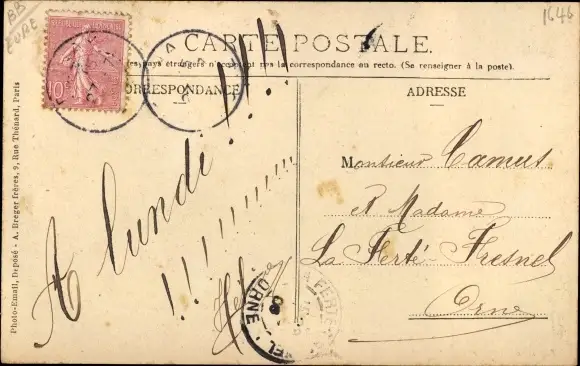 BB
EURE
1646
10
CARTE POSTALE.
pays étrangers n'acceptent pas la correspondance au recto. (Se renseigner à la poste).
CORRESPONDANCE
ADRESSE
A lundi!!!!
!!!!!!!!!!
Monsieur Camus
et Madame
La Ferté-Fresnel
Orne
ORNE
08
LA FERTÉ
NEL
Photo-Email, Déposé - A. Breger frères, 9, Rue Thénard, Paris